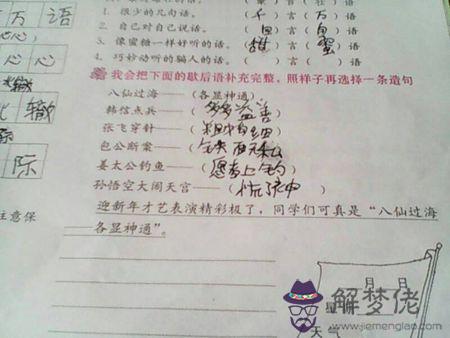 万 语
1. 很少的几句话。 (千)言(万)语
2. 自已对自己说话。 (自)言(自)语
3. 像蜜糖一样好听的话。(甜)言(蜜)语
4. 巧妙动听的骗人的话。( )言( )语
心 心
我会把下面的歇后语补充完整，照样子再选择一条造句
八仙过海——(各显神通)
韩信点兵——(多多益善)
辙
张飞穿针——(粗中有细)
包公断案——(铁面无私)
际
姜太公钓鱼——(愿者上钩)
孙悟空大闹天宫——( )
迎新年才艺表演精彩极了，同学们可真是“八仙过海
注意保
——各显神通”。
月 日
星
天气
解梦佬
www.jiemenglao.com